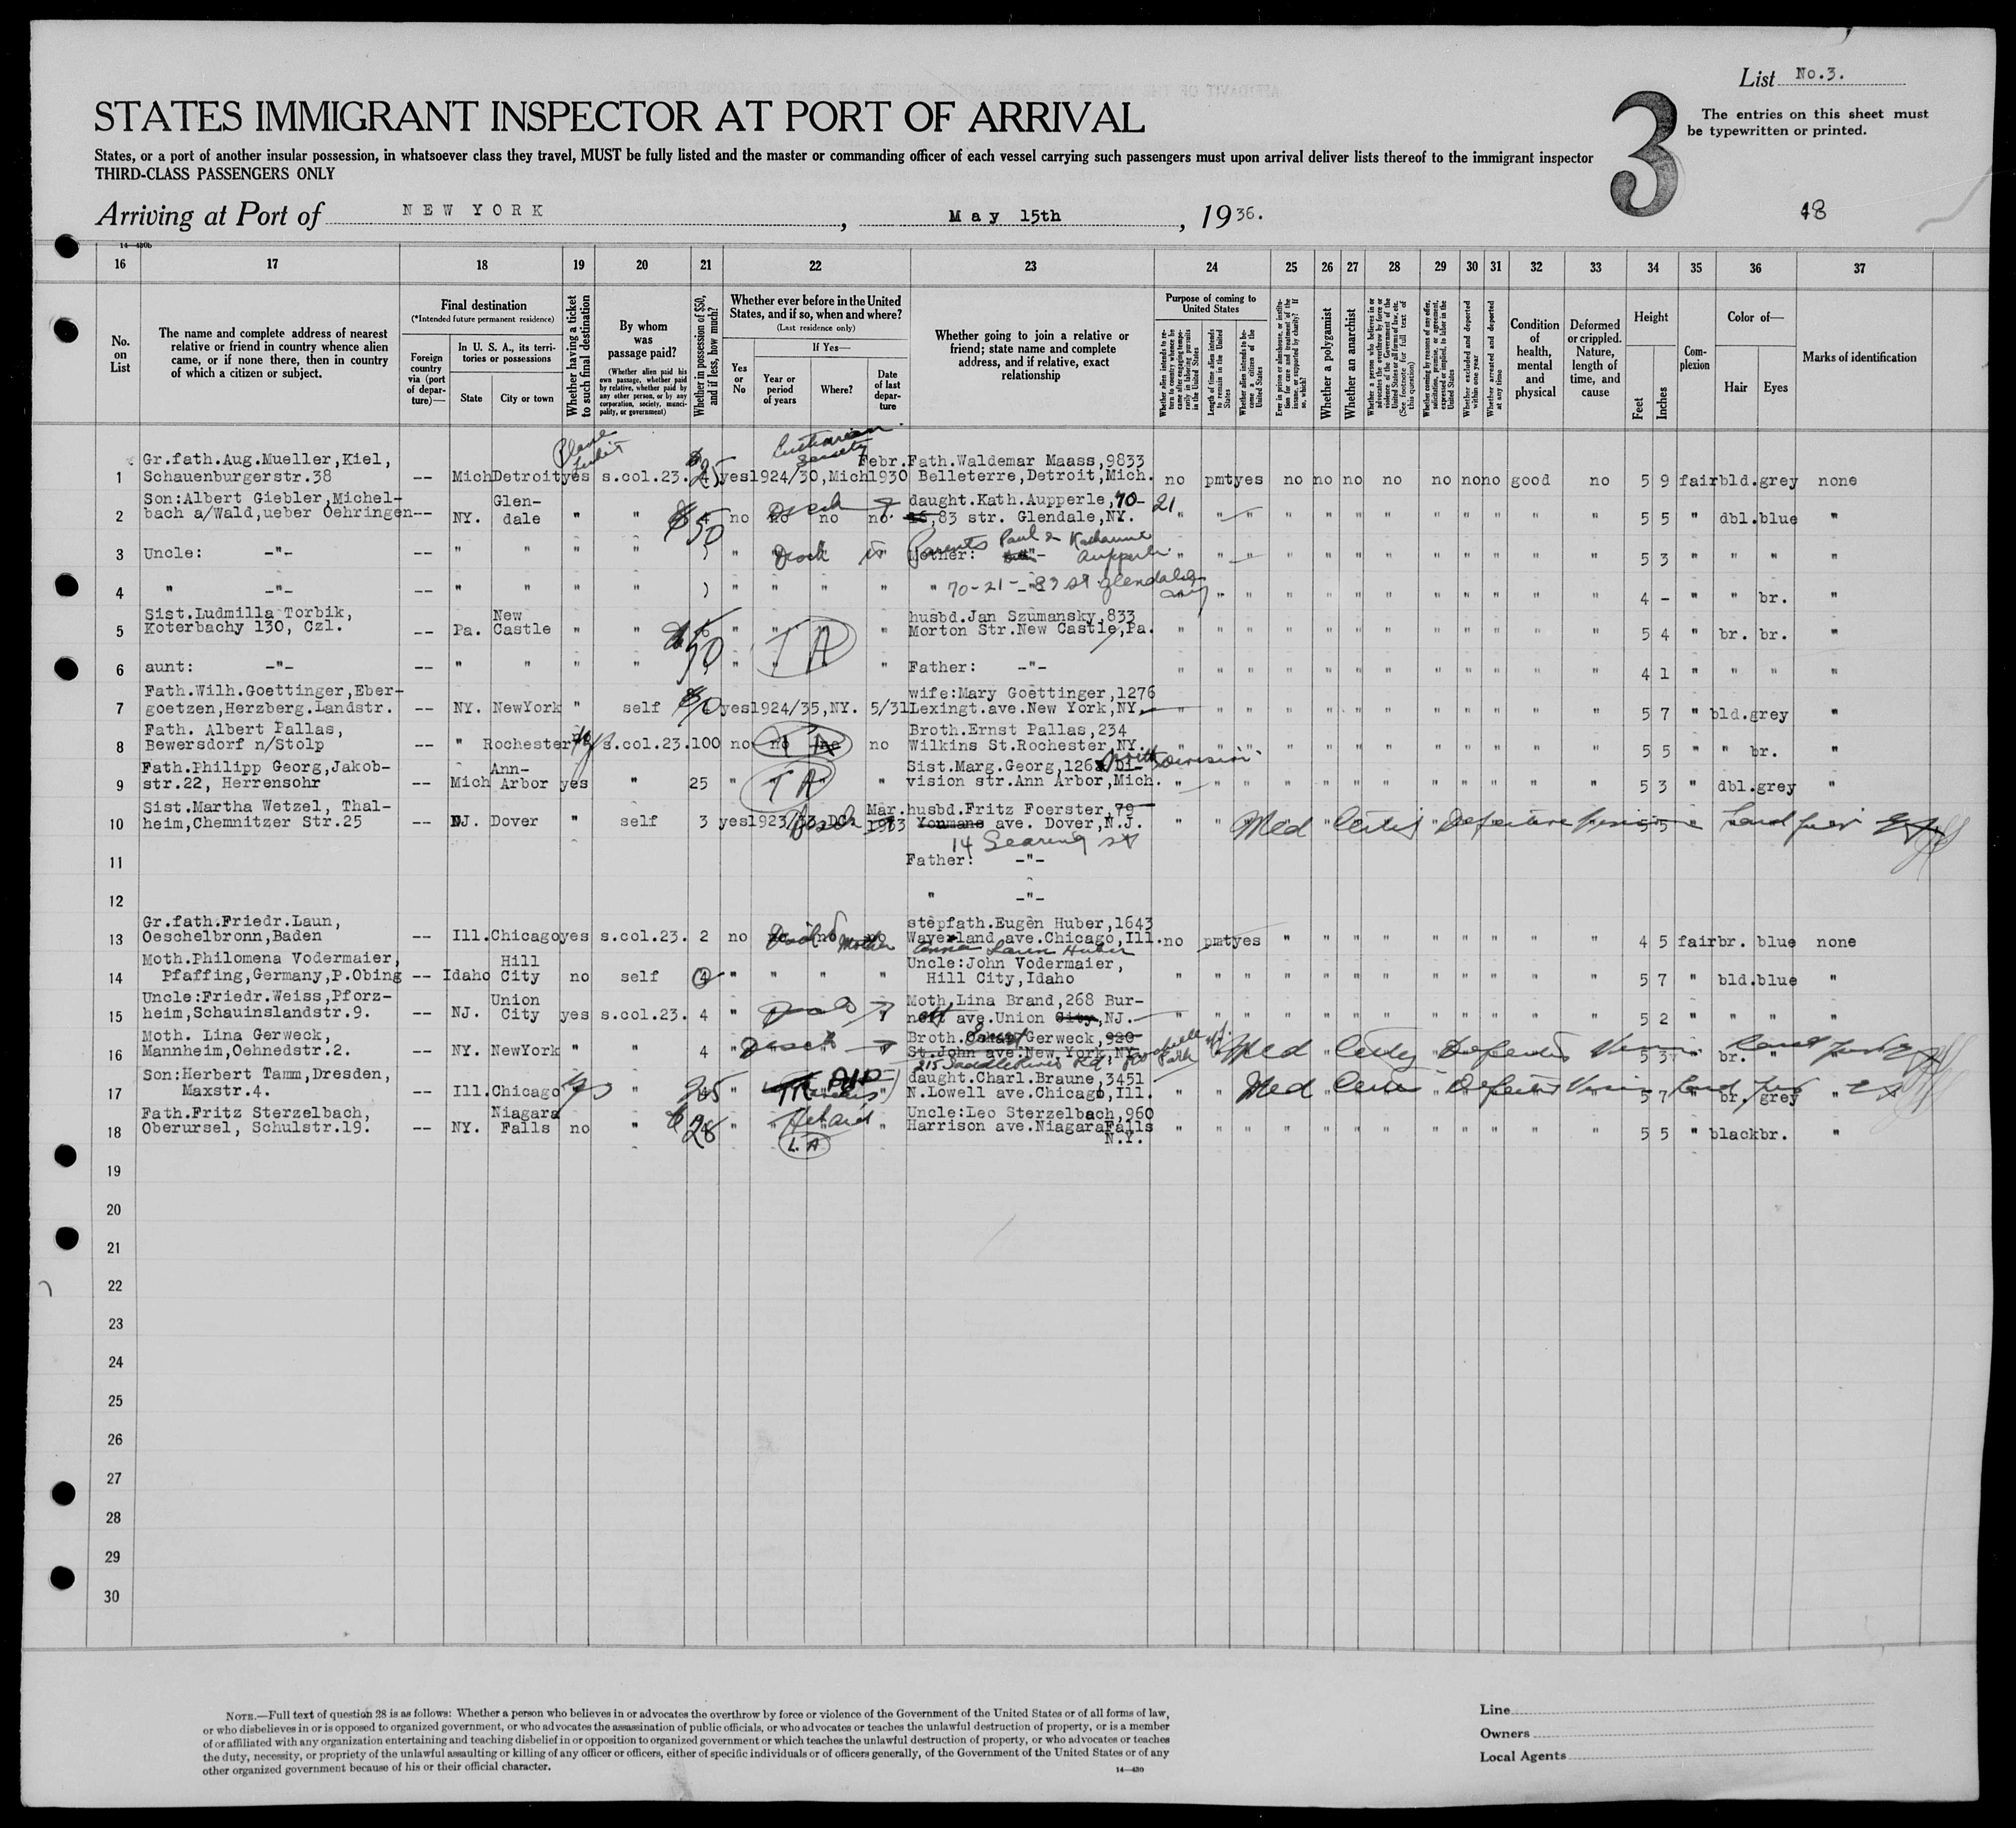 List No.3.
STATES IMMIGRANT INSPECTOR AT PORT OF ARRIVAL
3
The entries on this sheet must
be typewritten or printed.
States, or a port of another insular possession, in whatsoever class they travel, MUST be fully listed and the master or commanding officer of each vessel carrying such passengers must upon arrival deliver lists thereof to the immigrant inspector
THIRD-CLASS PASSENGERS ONLY
Arriving at Port of NEW YORK, May 15th, 1936.
18
14—430b
16 17 18 19 20 21 22 23 24 25 26 27 28 29 30 31 32 33 34 35 36 37
No. on List
The name and complete address of nearest relative or friend in country whence alien came, or if none there, then in country of which a citizen or subject.
Final destination
(*Intended future permanent residence)
Foreign country via (port of departure)—
In U. S. A., its territories or possessions
State
City or town
Whether having a ticket to such final destination
By whom was passage paid?
(Whether alien paid his own passage, whether paid by relative, whether paid by any other person, or by any corporation, society, municipality, or government)
Whether in possession of $50, and if less, how much?
Whether ever before in the United States, and if so, when and where?
(Last residence only)
Yes or No
If Yes—
Year or period of years
Where?
Date of last departure
Whether going to join a relative or friend; state name and complete address, and if relative, exact relationship
Purpose of coming to United States
Whether alien intends to return to country whence he came after engaging temporarily in laboring pursuits in the United States
Length of time alien intends to remain in the United States
Whether alien intends to become a citizen of the United States
Ever in prison or almshouse, or institution for care and treatment of the insane, or supported by charity? If so, which?
Whether a polygamist
Whether an anarchist
Whether a person who believes in or advocates the overthrow by force or violence of the Government of the United States or all forms of law, etc. (See footnote for full text of this question)
Whether coming by reasons of any offer, solicitation, promise, or agreement, expressed or implied, to labor in the United States
Whether excluded and deported within one year
Whether arrested and deported at any time
Condition of health, mental and physical
Deformed or crippled. Nature, length of time, and cause
Height
Feet
Inches
Complexion
Color of—
Hair
Eyes
Marks of identification
1 Gr.fath.Aug.Mueller,Kiel, Schauenburgerstr.38 -- Mich Detroit yes s.col.23. $25 yes 1924/30,Mich Febr. 1930 Fath.Waldemar Maass,9833 Belleterre,Detroit,Mich. no pmt yes no no no no no no no good no 5 9 fair bld. grey none
2 Son:Albert Giebler,Michelbach a/Wald,ueber Oehringen -- NY. Glendale " " $50 no no no no daught.Kath.Aupperle,70-21 ,83 str. Glendale,NY. " " " " " " " " " " " 5 5 " dbl. blue "
3 Uncle: -"- -- " " " " " " Mother: -"- Parents Paul & Katharine Aupperle " " " " " " " " " " " 5 3 " " " "
4 " -"- -- " " " " " " " " " 70-21- 83 st Glendale NY " " " " " " " " " " 4 - " " br. "
5 Sist.Ludmilla Torbik, Koterbachy 130, Czl. -- Pa. New Castle " " $50 " TA " husbd.Jan Szumansky,833 Morton Str.New Castle,Pa. " " " " " " " " " " " " 5 4 " br. br. "
6 aunt: -"- -- " " " " " " Father: -"- " " " " " " " " " " " " 4 1 " " " "
7 Fath.Wilh.Goettinger,Ebergoetzen,Herzberg.Landstr. -- NY. NewYork " self yes 1924/35,NY. 5/31 wife:Mary Goettinger,1276 Lexingt.ave.New York,NY. " " " " " " " " " " " " 5 7 " bld. grey "
8 Fath. Albert Pallas, Bewersdorf n/Stolp -- " Rochester s.col.23. 100 no no no no Broth.Ernst Pallas,234 Wilkins St.Rochester,NY. " " " " " " " " " " " " 5 5 " " br. "
9 Fath.Philipp Georg,Jakobstr.22, Herrensohr -- Mich Ann-Arbor yes " 25 " TA " Sist.Marg.Georg,126 Division str.Ann Arbor,Mich. " " " " " " " " " " " 5 3 " dbl. grey "
10 Sist.Martha Wetzel, Thalheim,Chemnitzer Str.25 -- NJ. Dover " self 3 yes 1923/ Mar. 1933 husbd.Fritz Foerster,79 Youmans ave. Dover,N.J. 14 Searing st " " Med Certif Defective Vision 5 5
11 Father: -"-
12 " -"-
13 Gr.fath.Friedr.Laun, Oeschelbronn,Baden -- Ill. Chicago yes s.col.23. 2 no no no no stepfath.Eugèn Huber,1643 Waverland ave.Chicago,Ill. Mother Anna Laun Huber no pmt yes " " " " " " " " " 4 5 fair br. blue none
14 Moth.Philomena Vodermaier, Pfaffing,Germany,P.Obing -- Idaho Hill City no self 4 " " " " Uncle:John Vodermaier, Hill City,Idaho " " " " " " " " " " " " 5 7 " bld. blue "
15 Uncle:Friedr.Weiss,Pforzheim,Schauinslandstr.9. -- NJ. Union City yes s.col.23. 4 " Moth.Lina Brand,268 Bur- ave.Union City,NJ. " " " " " " " " " " " " 5 2 " " " "
16 Moth. Lina Gerweck, Mannheim,Oehnedstr.2. -- NY. NewYork " " 4 " Broth. Gerweck,920 St.John ave.New York,NY. 215 Saddle River Rd. Rochelle Park Med Certif Defective Vision 5 3 br. "
17 Son:Herbert Tamm,Dresden, Maxstr.4. -- Ill. Chicago yes " " daught.Charl.Braune,3451 N.Lowell ave.Chicago,Ill. " " Med Certif Defective Vision 5 7 br. grey "
18 Fath.Fritz Sterzelbach, Oberursel, Schulstr.19. -- NY. Niagara Falls no " $28 " L.A " Uncle:Leo Sterzelbach,960 Harrison ave.NiagaraFalls N.Y. " " " " " " " " " " " " 5 5 " black br. "
19
20
21
22
23
24
25
26
27
28
29
30
NOTE.—Full text of question 28 is as follows: Whether a person who believes in or advocates the overthrow by force or violence of the Government of the United States or of all forms of law,
or who disbelieves in or is opposed to organized government, or who advocates the assassination of public officials, or who advocates or teaches the unlawful destruction of property, or is a member
of or affiliated with any organization entertaining and teaching disbelief in or opposition to organized government or which teaches the unlawful destruction of property, or who advocates or teaches
the duty, necessity, or propriety of the unlawful assaulting or killing of any officer or officers, either of specific individuals or of officers generally, of the Government of the United States or of any
other organized government because of his or their official character.
14—430
Line
Owners
Local Agents